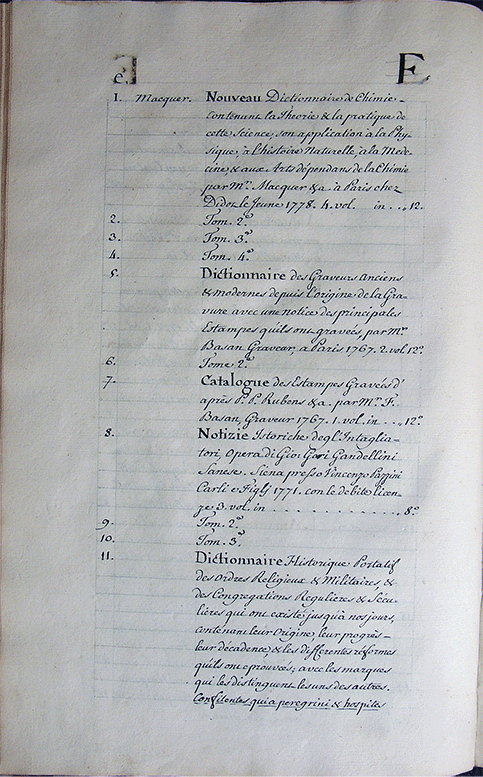 E
e.
1. Macquer. Nouveau Dictionnaire de Chimie -
contenant la Theorie & la pratique de
cette Science, son application a la Phy-
sique, à l'histoire Naturelle, a la Mede-
cine & aux Arts dépendans de la Chimie
par Mr. Macquer &a. à Paris chez
Didot le Jeune 1778. 4. vol. in . . 12.
2. Tom. 2.º
3. Tom. 3.º
4. Tom. 4.º
5. Dictionnaire des Graveurs anciens
& modernes depuis l'origine de la Gra-
vure avec une notice des principales
Estampes qu'ils ont gravées, par Mr.
Basan Graveur, a Paris 1767. 2. vol. 12º.
6. Tome 2.º
7. Catalogue des Estampes Gravées d'
après P. P. Rubens &a. par Mr. F.
Basan Graveur 1767. 1. vol. in . . . 12º
8. Notizie Istoriche degl'Intaglia-
tori, Opera di Gio: Gori Gandellini
Sanese. Siena presso Vincenzo Pazzini
Carli e Figlj 1771. con le debite licen-
ze 3. vol. in . . . . . . . . . . . . . 8º
9. Tom. 2.º
10. Tom. 3.º
11. Dictionnaire Historique Portatif
des Ordres Religieux & Militaires, &
des Congregations Regulières & Sécu-
lières qui ont existé jusqu'à nos jours,
contenant leur Origine, leur progrès -
leur décadence, & les differentes réformes
qu'ils ont eprouvées; avec les marques
qui les distinguent les uns des autres.
Confitentes quia peregrini & hospites